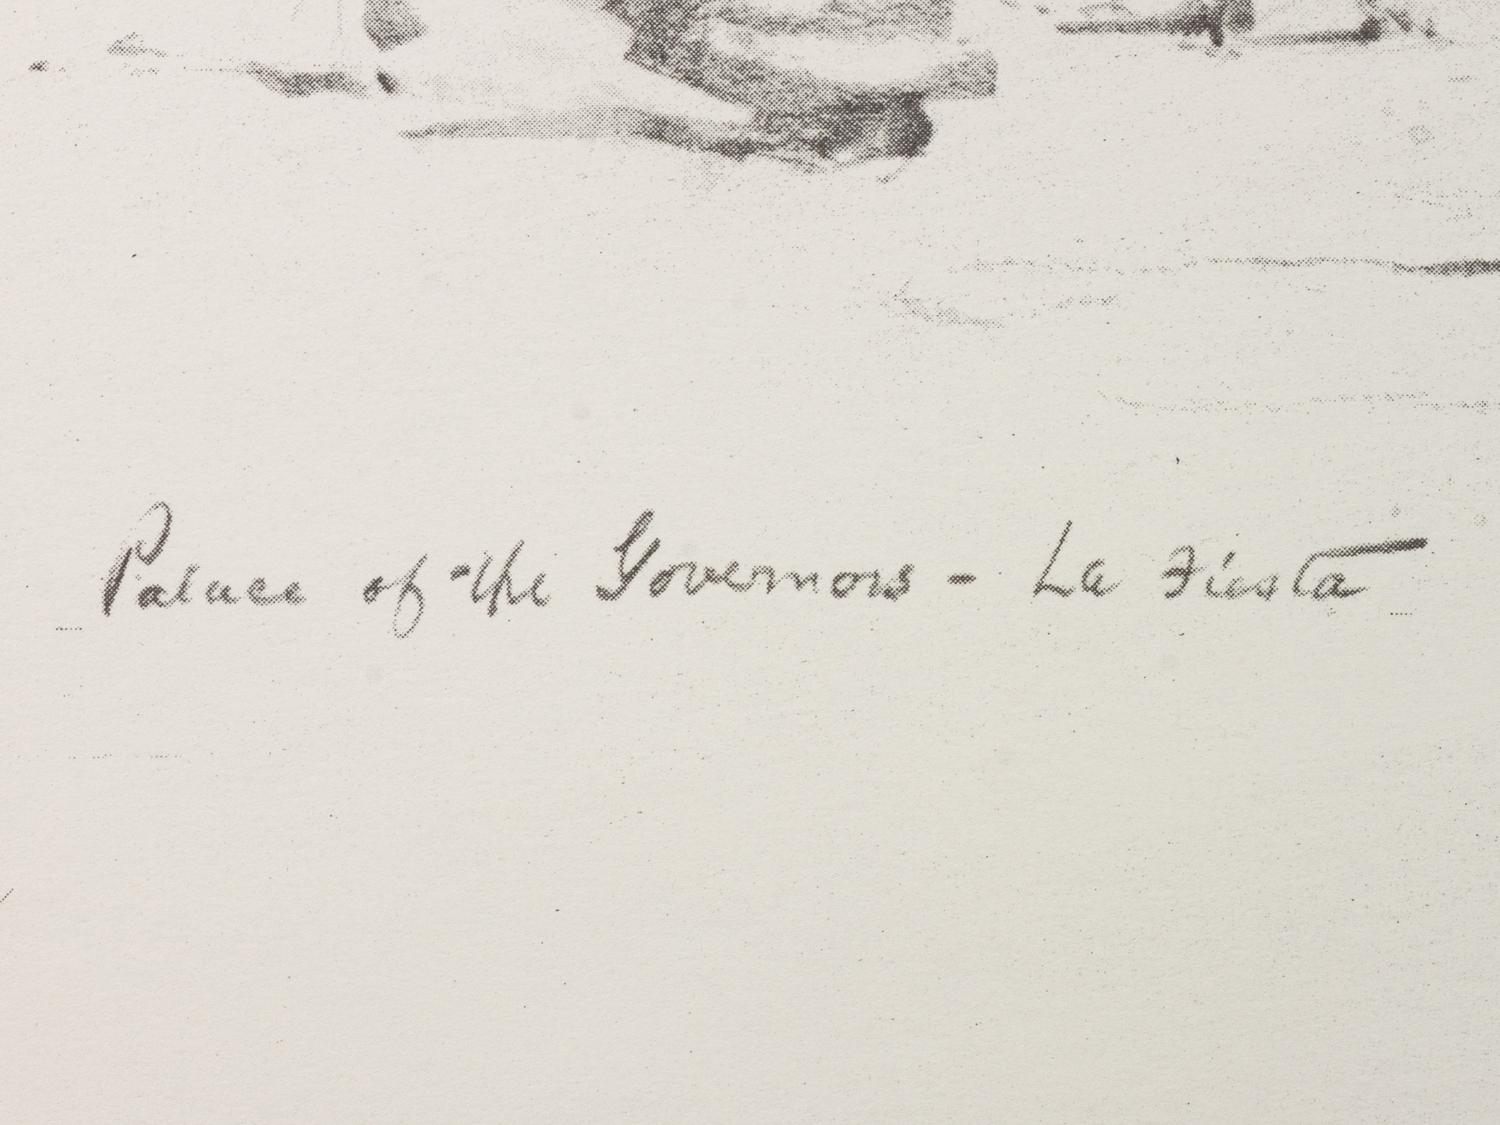 Palace of the Governors - La Fiesta